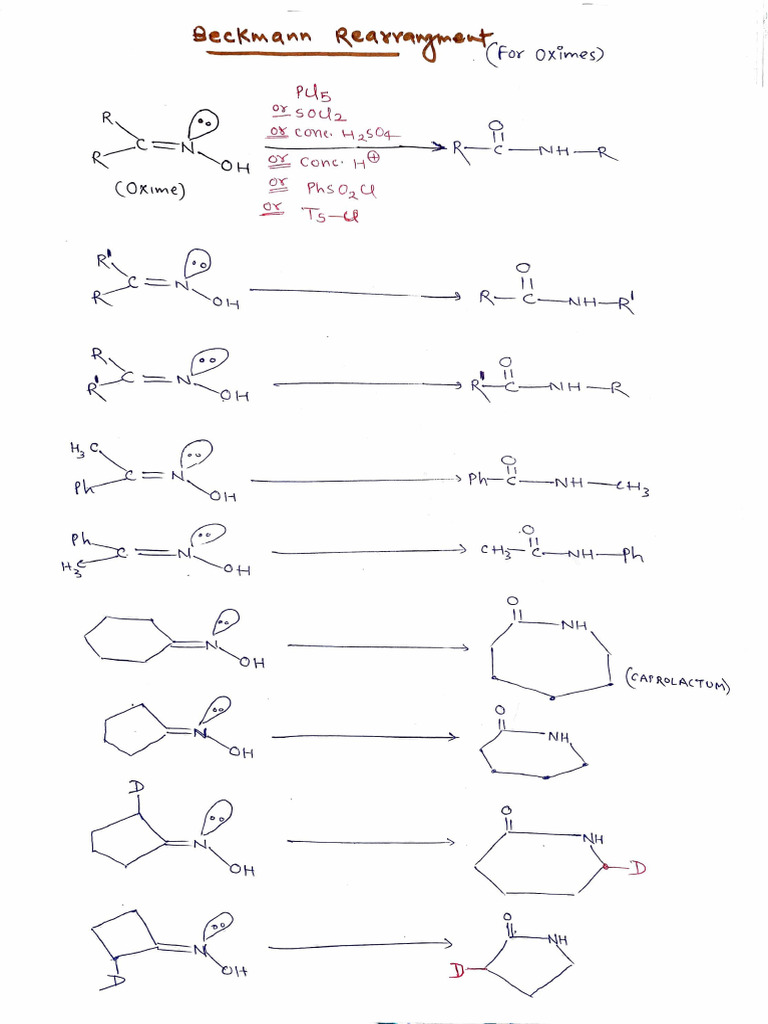 Beckmann Rearrangment (For Oximes)
PCl5
or SOCl2
or conc. H2SO4
or conc. H⊕
or PhSO2Cl
or Ts-Cl
R R C=N OH
(Oxime)
R-C-NH-R
O
R' R C=N OH
O
R-C-NH-R'
R R' C=N OH
O
R'-C-NH-R
H3C Ph C=N OH
O
Ph-C-NH-CH3
Ph H3C C=N OH
O
CH3-C-NH-Ph
N OH
O NH
(CAPROLACTUM)
N OH
O NH
D N OH
O NH D
D N OH
O NH D